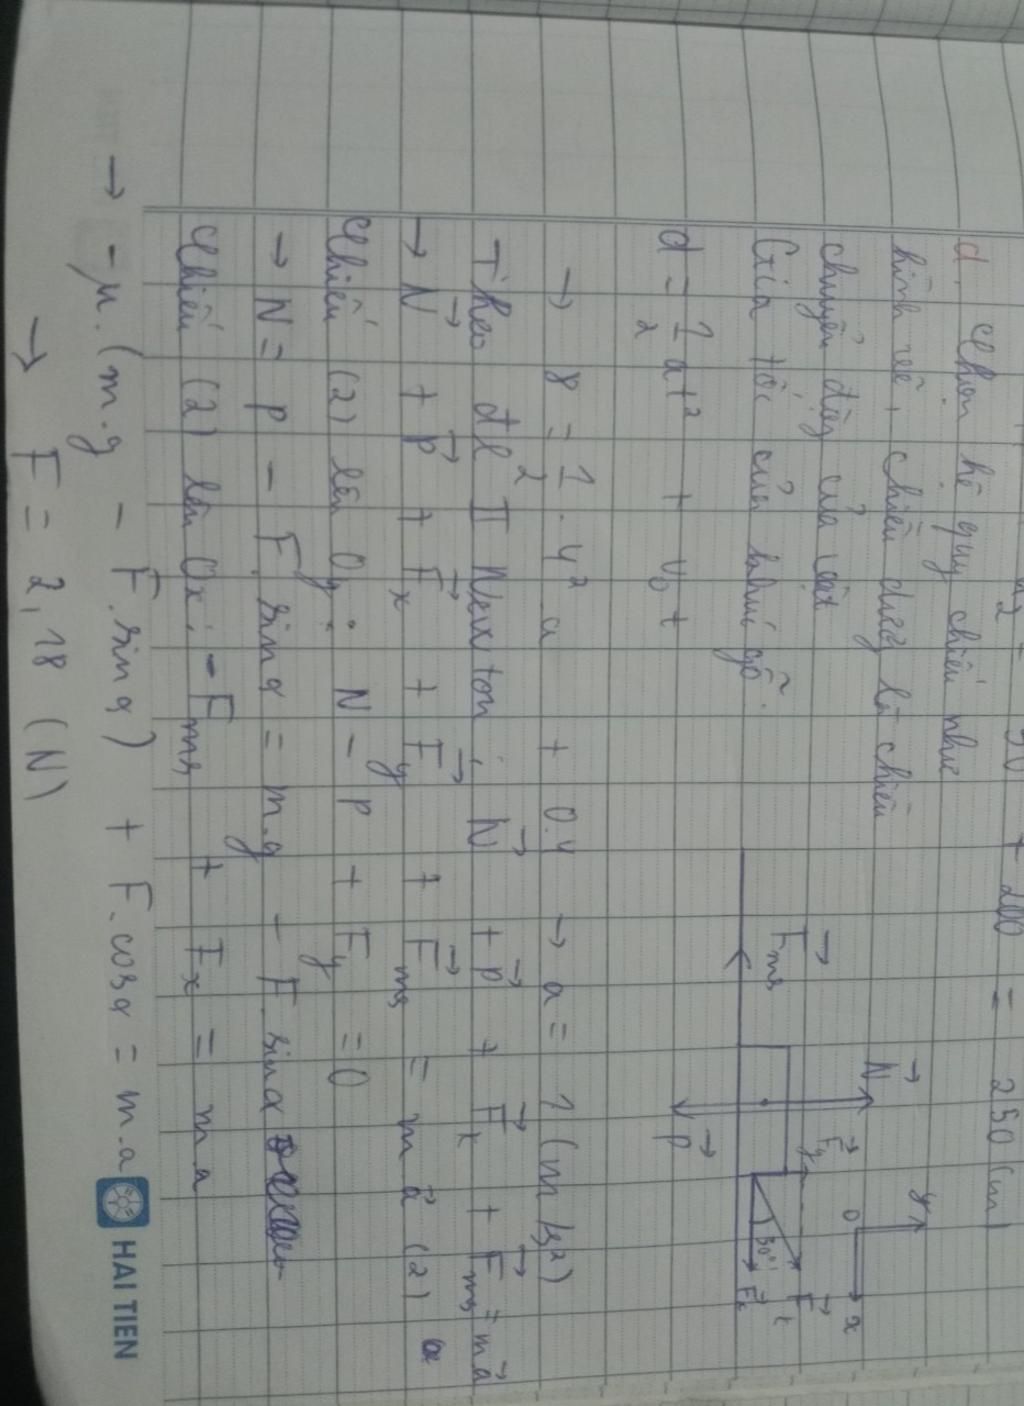 50 + 200 = 250 (m)
d. Chọn hệ quy chiếu như
hình vẽ, chiều dương là chiều
chuyển động của vật
Gia tốc của khúc gỗ.
y
O
x
N
Fy
F
30°
Fx
Fms
P
d = 1/2 at² + v₀t
→ 8 = 1/2 . 4² a + 0.4 → a = 1 (m/s²)
Theo đl II Newton: N + P + Ft + Fms = ma
→ N + P + Fx + Fy + Fms = ma (2)
Chiếu (2) lên Oy: N - P + Fy = 0
→ N = P - F.sinα = m.g - F sinα
Chiếu (2) lên Ox: -Fms + Fx = ma
→ -μ.(m.g - F.sinα) + F.cosα = m.a
→ F = 2,18 (N)
HAI TIEN